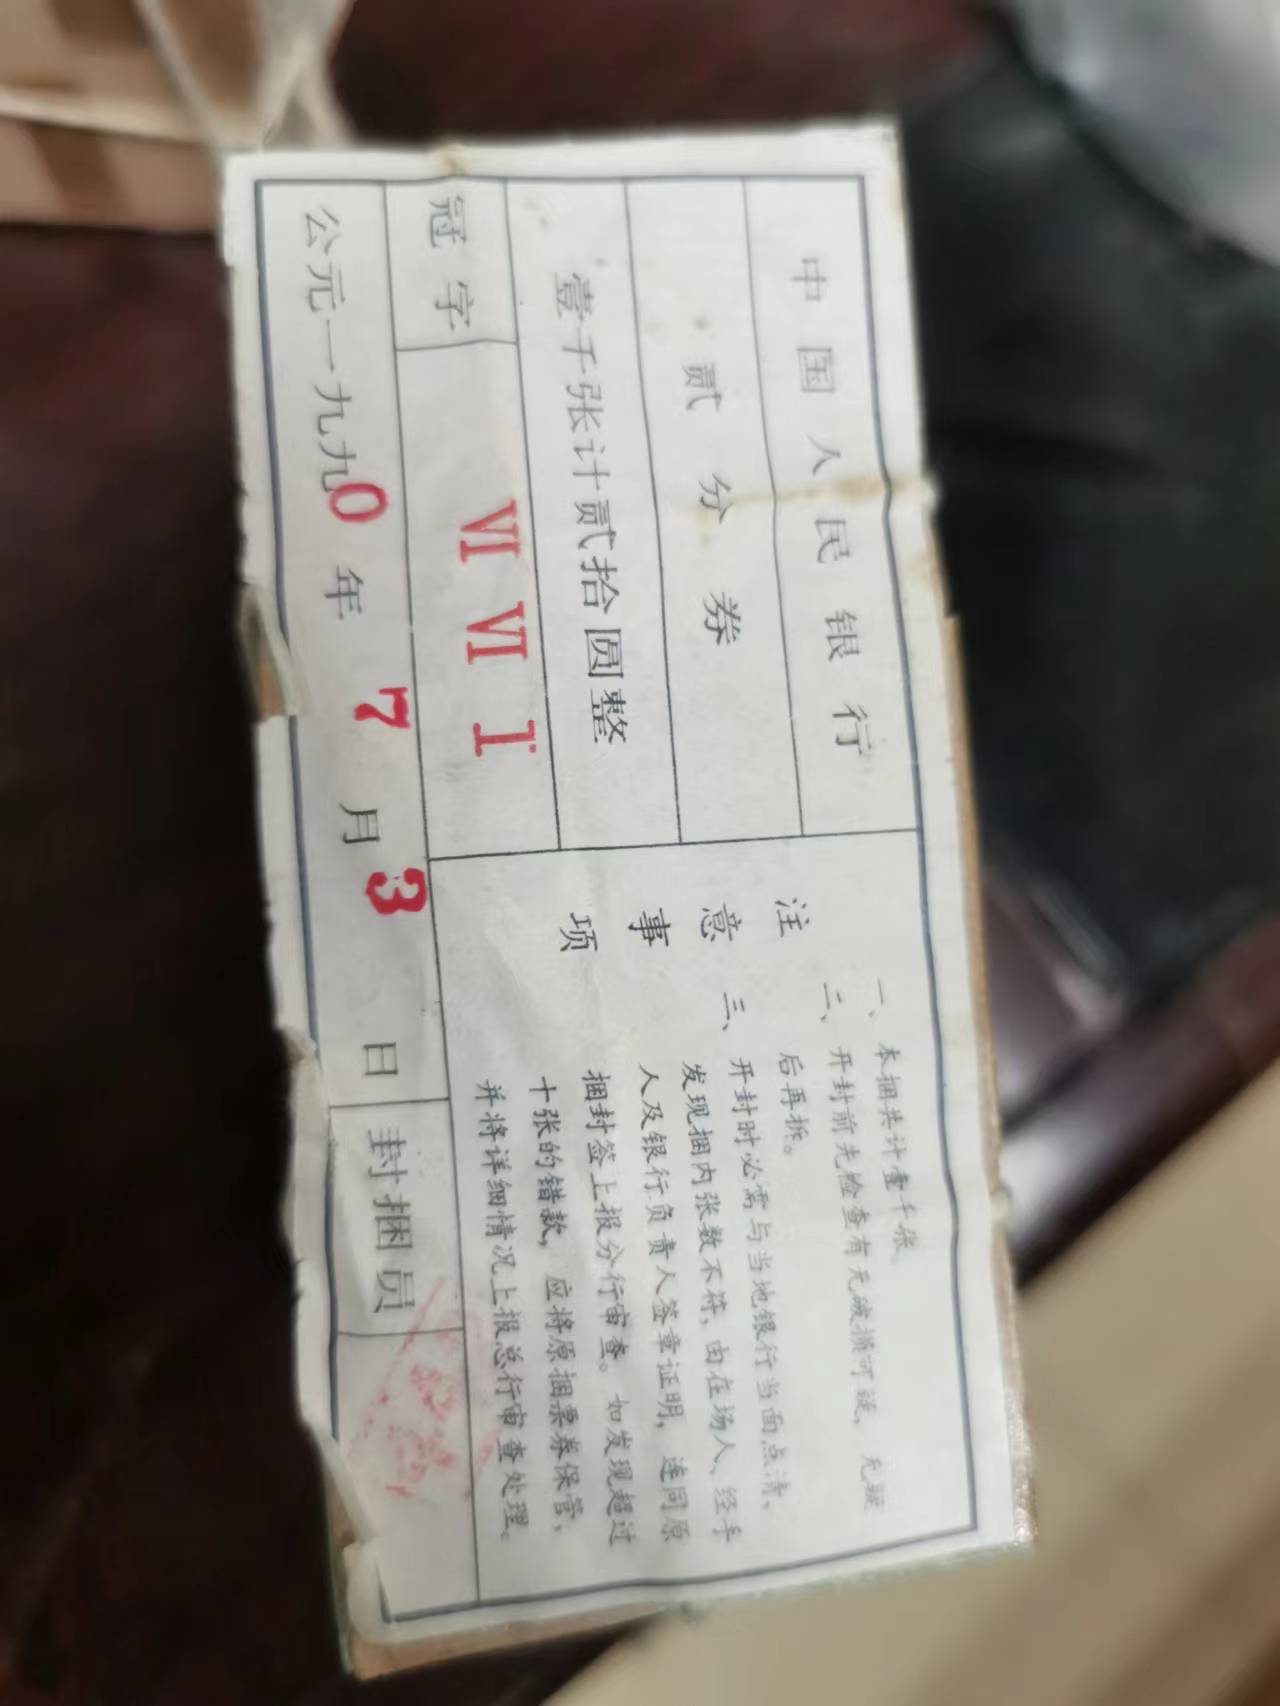 中国人民银行
贰分券
壹千张计贰拾圆整
冠字 VI VI I
公元一九九0年7月3日 封捆员
注意事项
一、本捆共计壹千张。
二、开封前先检查有无破损可疑，无疑
后再拆。
三、开封时必需与当地银行当面点清，
发现捆内张数不符，由在场人、经手
人及银行负责人签章证明，连同原
捆封签上报分行审查。如发现超过
十张的错款，应将原捆票券保管，
并将详细情况上报总行审查处理。